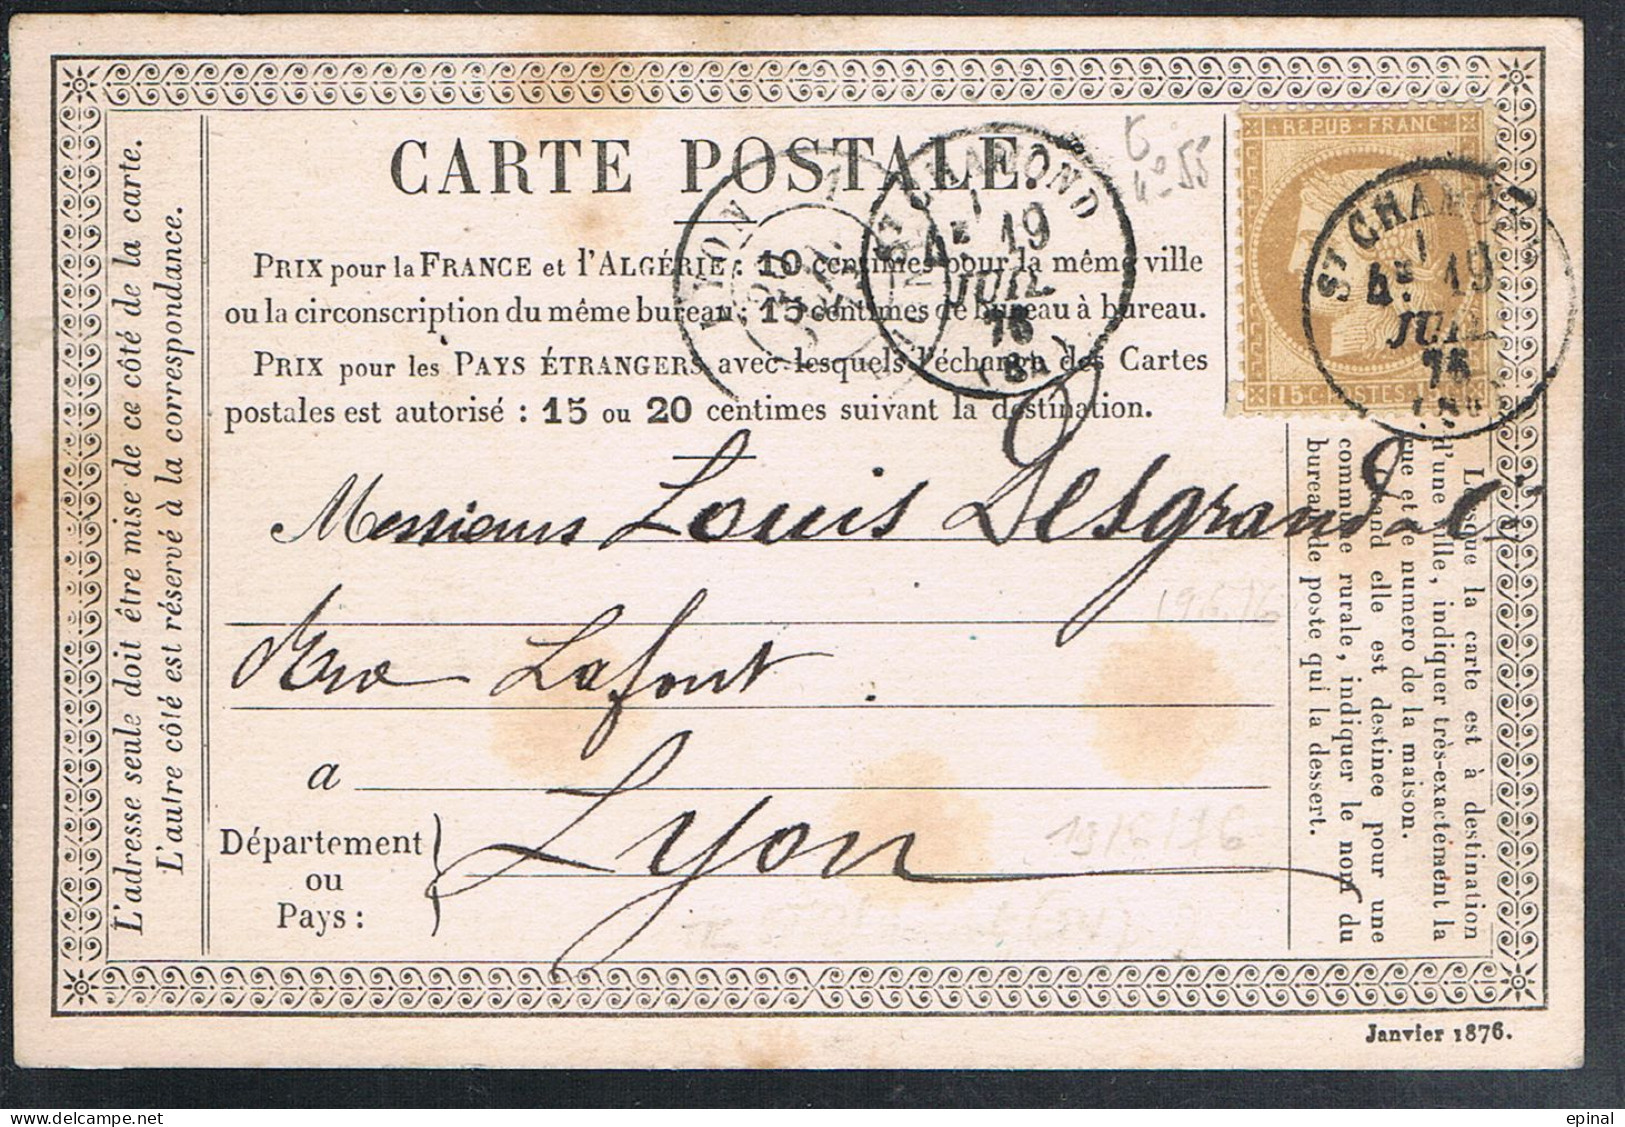 CARTE POSTALE.
PRIX pour la FRANCE et l'ALGÉRIE : 10 centimes pour la même ville
ou la circonscription du même bureau ; 15 centimes de bureau à bureau.
PRIX pour les PAYS ÉTRANGERS avec lesquels l'échange des Cartes
postales est autorisé : 15 ou 20 centimes suivant la destination.
L'adresse seule doit être mise de ce côté de la carte.
L'autre côté est réservé à la correspondance.
LYON
ST CHAMOND
4E 19
JUIL.
76
REPUB. FRANC.
15 C. POSTES 15
ST CHAMOND
4E 19
JUIL.
76
Messieurs Louis Desgrand & Cie
Rue Lafont
a
Lyon
Département
ou
Pays :
Lorsque la carte est à destination
d'une ville, indiquer très-exactement la
rue et le numero de la maison.
Quand elle est destinee pour une
commune rurale, indiquer le nom du
bureau de poste qui la dessert.
19/6/76
Janvier 1876.
epinal